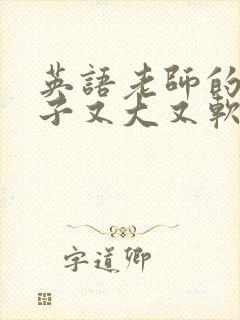 英語老師的
子又大又軟
字道卿